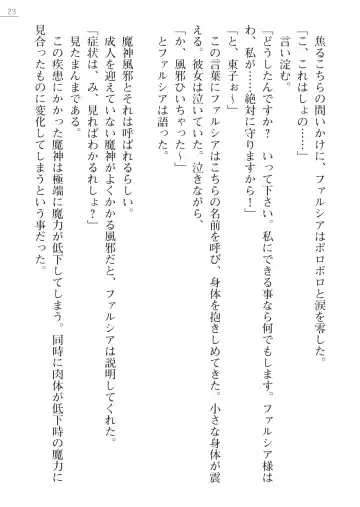 23
焦るこちらの問いかけに、ファルシアはポロポロと涙を零した。
「こ、これはしょの……」
言い淀む。
「どうしたんですか？　いって下さい。私にできる事なら何でもします。ファルシア様は
わ、私が……絶対に守りますから！」
「と、東子ぉ〜」
この言葉にファルシアはこちらの名前を呼び、身体を抱きしめてきた。小さな身体が震
える。彼女は泣いていた。泣きながら、
「か、風邪ひいちゃった〜」
とファルシアは語った。
魔神風邪とそれは呼ばれるらしい。
成人を迎えていない魔神がよくかかる風邪だと、ファルシアは説明してくれた。
「症状は、み、見ればわかるれしょ？」
見たまんまである。
この疾患にかかった魔神は極端に魔力が低下してしまう。同時に肉体が低下時の魔力に
見合ったものに変化してしまうという事だった。